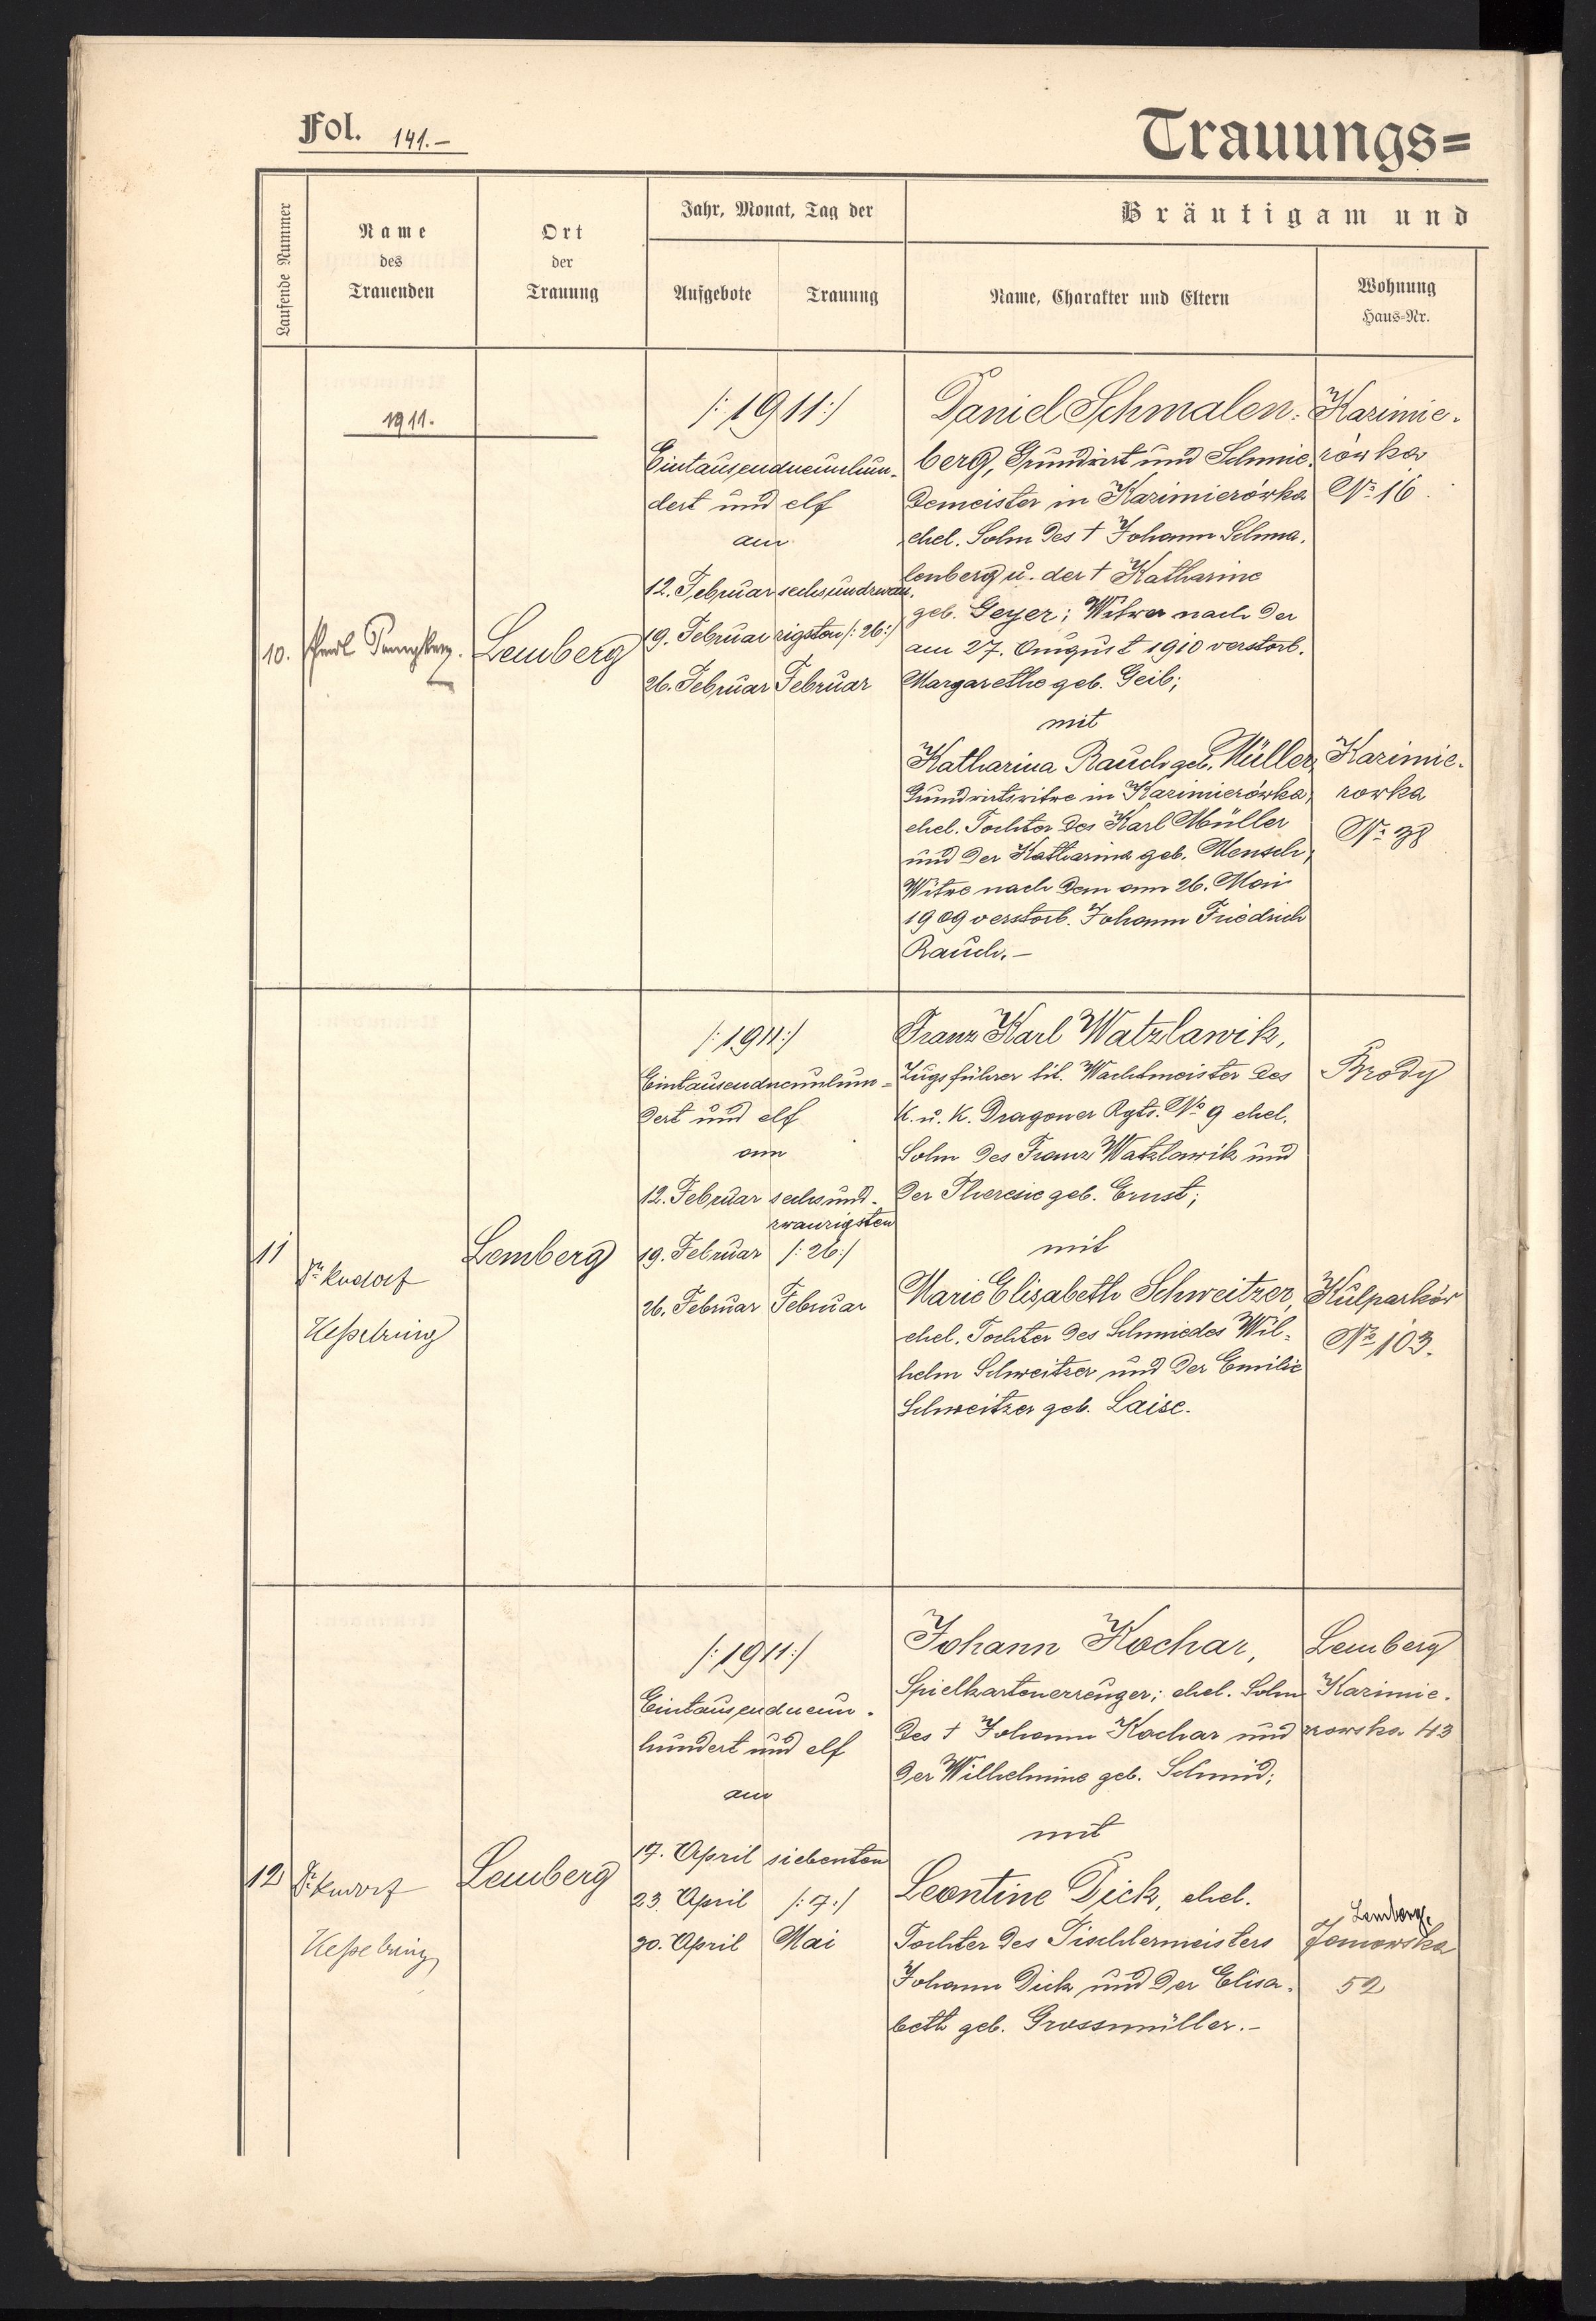 Fol. 141.-
Trauungs=
Laufende Nummer
Name
des
Trauenden
Ort
der
Trauung
Jahr, Monat, Tag der
Aufgebote
Trauung
Bräutigam und
Name, Charakter und Eltern
Wohnung
Haus=Nr.
1911.
10.
Lemberg
/: 1911 :/
Eintausendneunhun-
dert und elf
am
12. Februar sechsundzwan-
19. Februar zigsten /: 26 :/
26. Februar Februar
Daniel Schmalen-
berg, Grundwirt und Schmie-
demeister in Kazimierówka
ehel. Sohn des † Johann Schma-
lenberg u. der † Katharine
geb. Geyer; Witwer nach der
am 27. August 1910 verstorb.
Margarethe geb. Geib;
mit
Katharina Rauch geb. Müller,
Grundwirtswitwe in Kazimierówka;
ehel. Tochter des Karl Müller
und der Katharina geb. Mensch;
Witwe nach dem am 26. Mai
1909 verstorb. Johann Friedrich
Rauch.-
Kazimie-
rówka
No 16
Kazimie-
rowka
No 38
11
Dr Rudolf
Kesselring
Lemberg
/: 1911 :/
Eintausendneunhun=
dert und elf
am
12. Februar sechsund-
zwanzigsten
19. Februar /: 26 :/
26. Februar Februar
Franz Karl Watzlawik,
Zugsführer tit. Wachtmeister des
k. u. k. Dragoner Rgts. No 9 ehel.
Sohn des Franz Watzlawik und
der Theresie geb. Ernst;
mit
Marie Elisabeth Schweitzer,
ehel. Tochter des Schmiedes Wil=
helm Schweitzer und der Emilie
Schweitzer geb. Laise.
Brody
Kulparków
No 103.
12
Dr Rudolf
Kesselring
Lemberg
/: 1911 :/
Eintausendneun-
hundert und elf
am
17. April siebenten
23. April /: 7 :/
30. April Mai
Johann Kochar,
Spielkartenerzeuger; ehel. Sohn
des † Johann Kochar und
der Wilhelmine geb. Schmid;
mit
Leontine Dick, ehel.
Tochter des Tischlermeisters
Johann Dick und der Elisa-
beth geb. Grossmüller.-
Lemberg
Kazimie-
rzowska 43
Lemberg,
Janowska
52